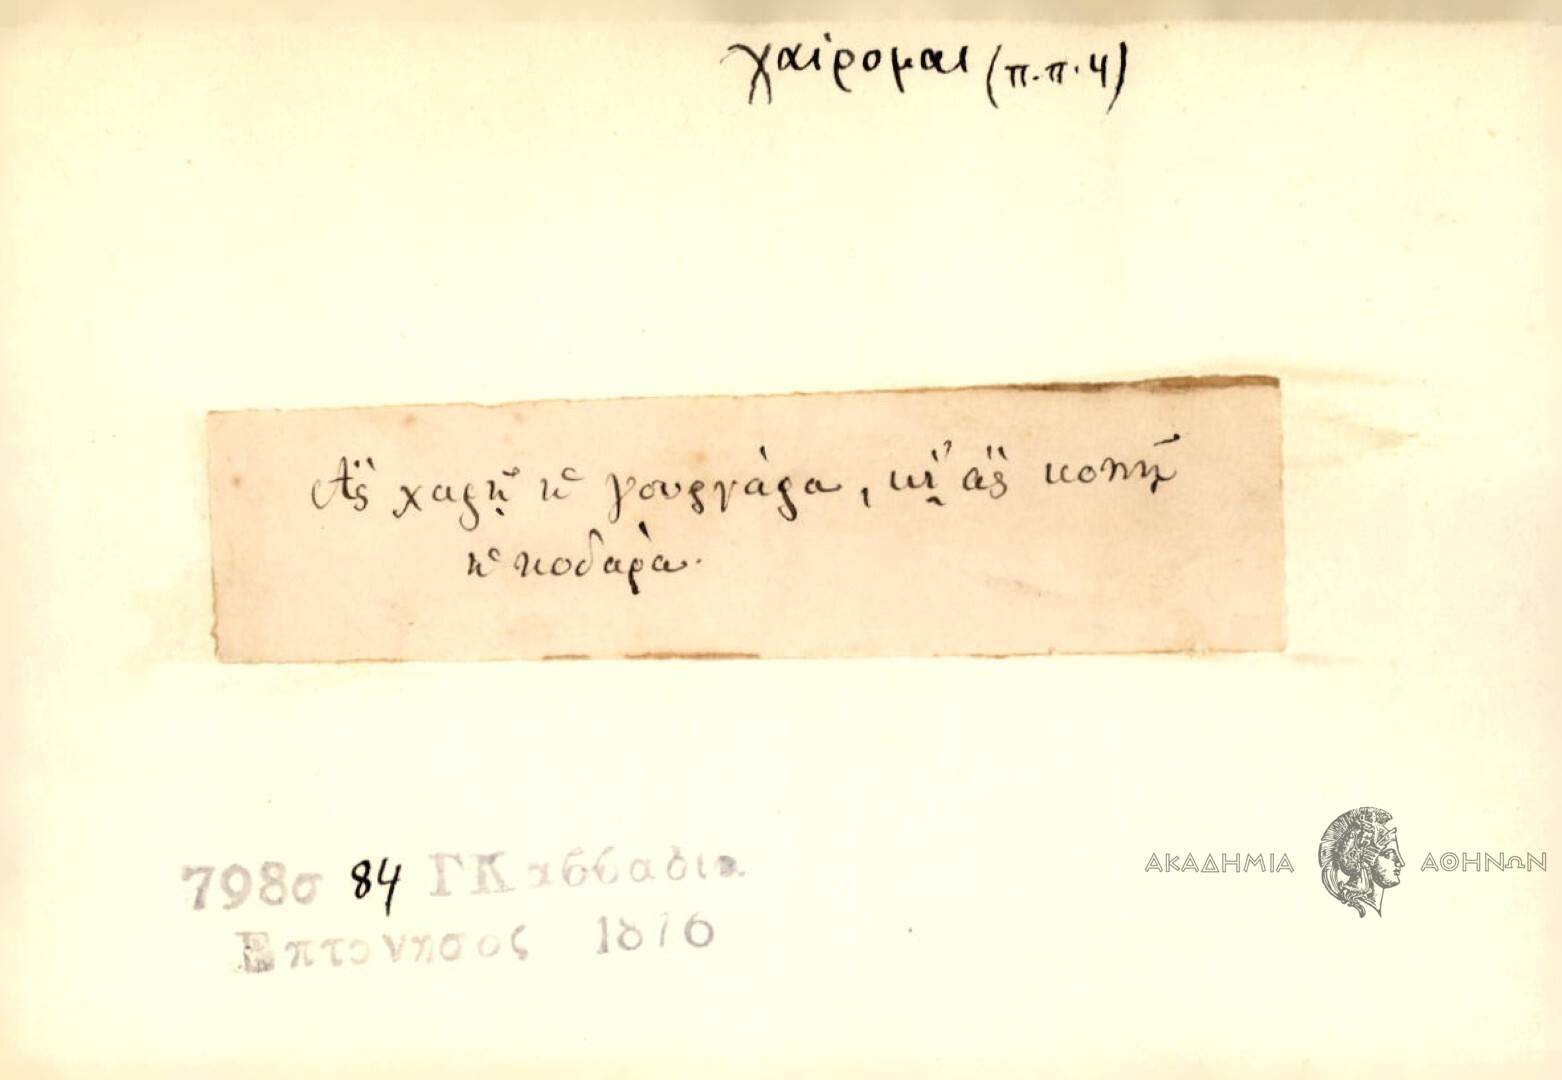 χαίρομαι (π.π.4)
Ἂς χαρῇ ἡ γουργάρα, κι' ἂς κοπῇ
ἡ ποδάρα.
798σ 84 ΓΚαββαδια
Επτονησος 1876
ΑΚΑΔΗΜΙΑ ΑΘΗΝΩΝ